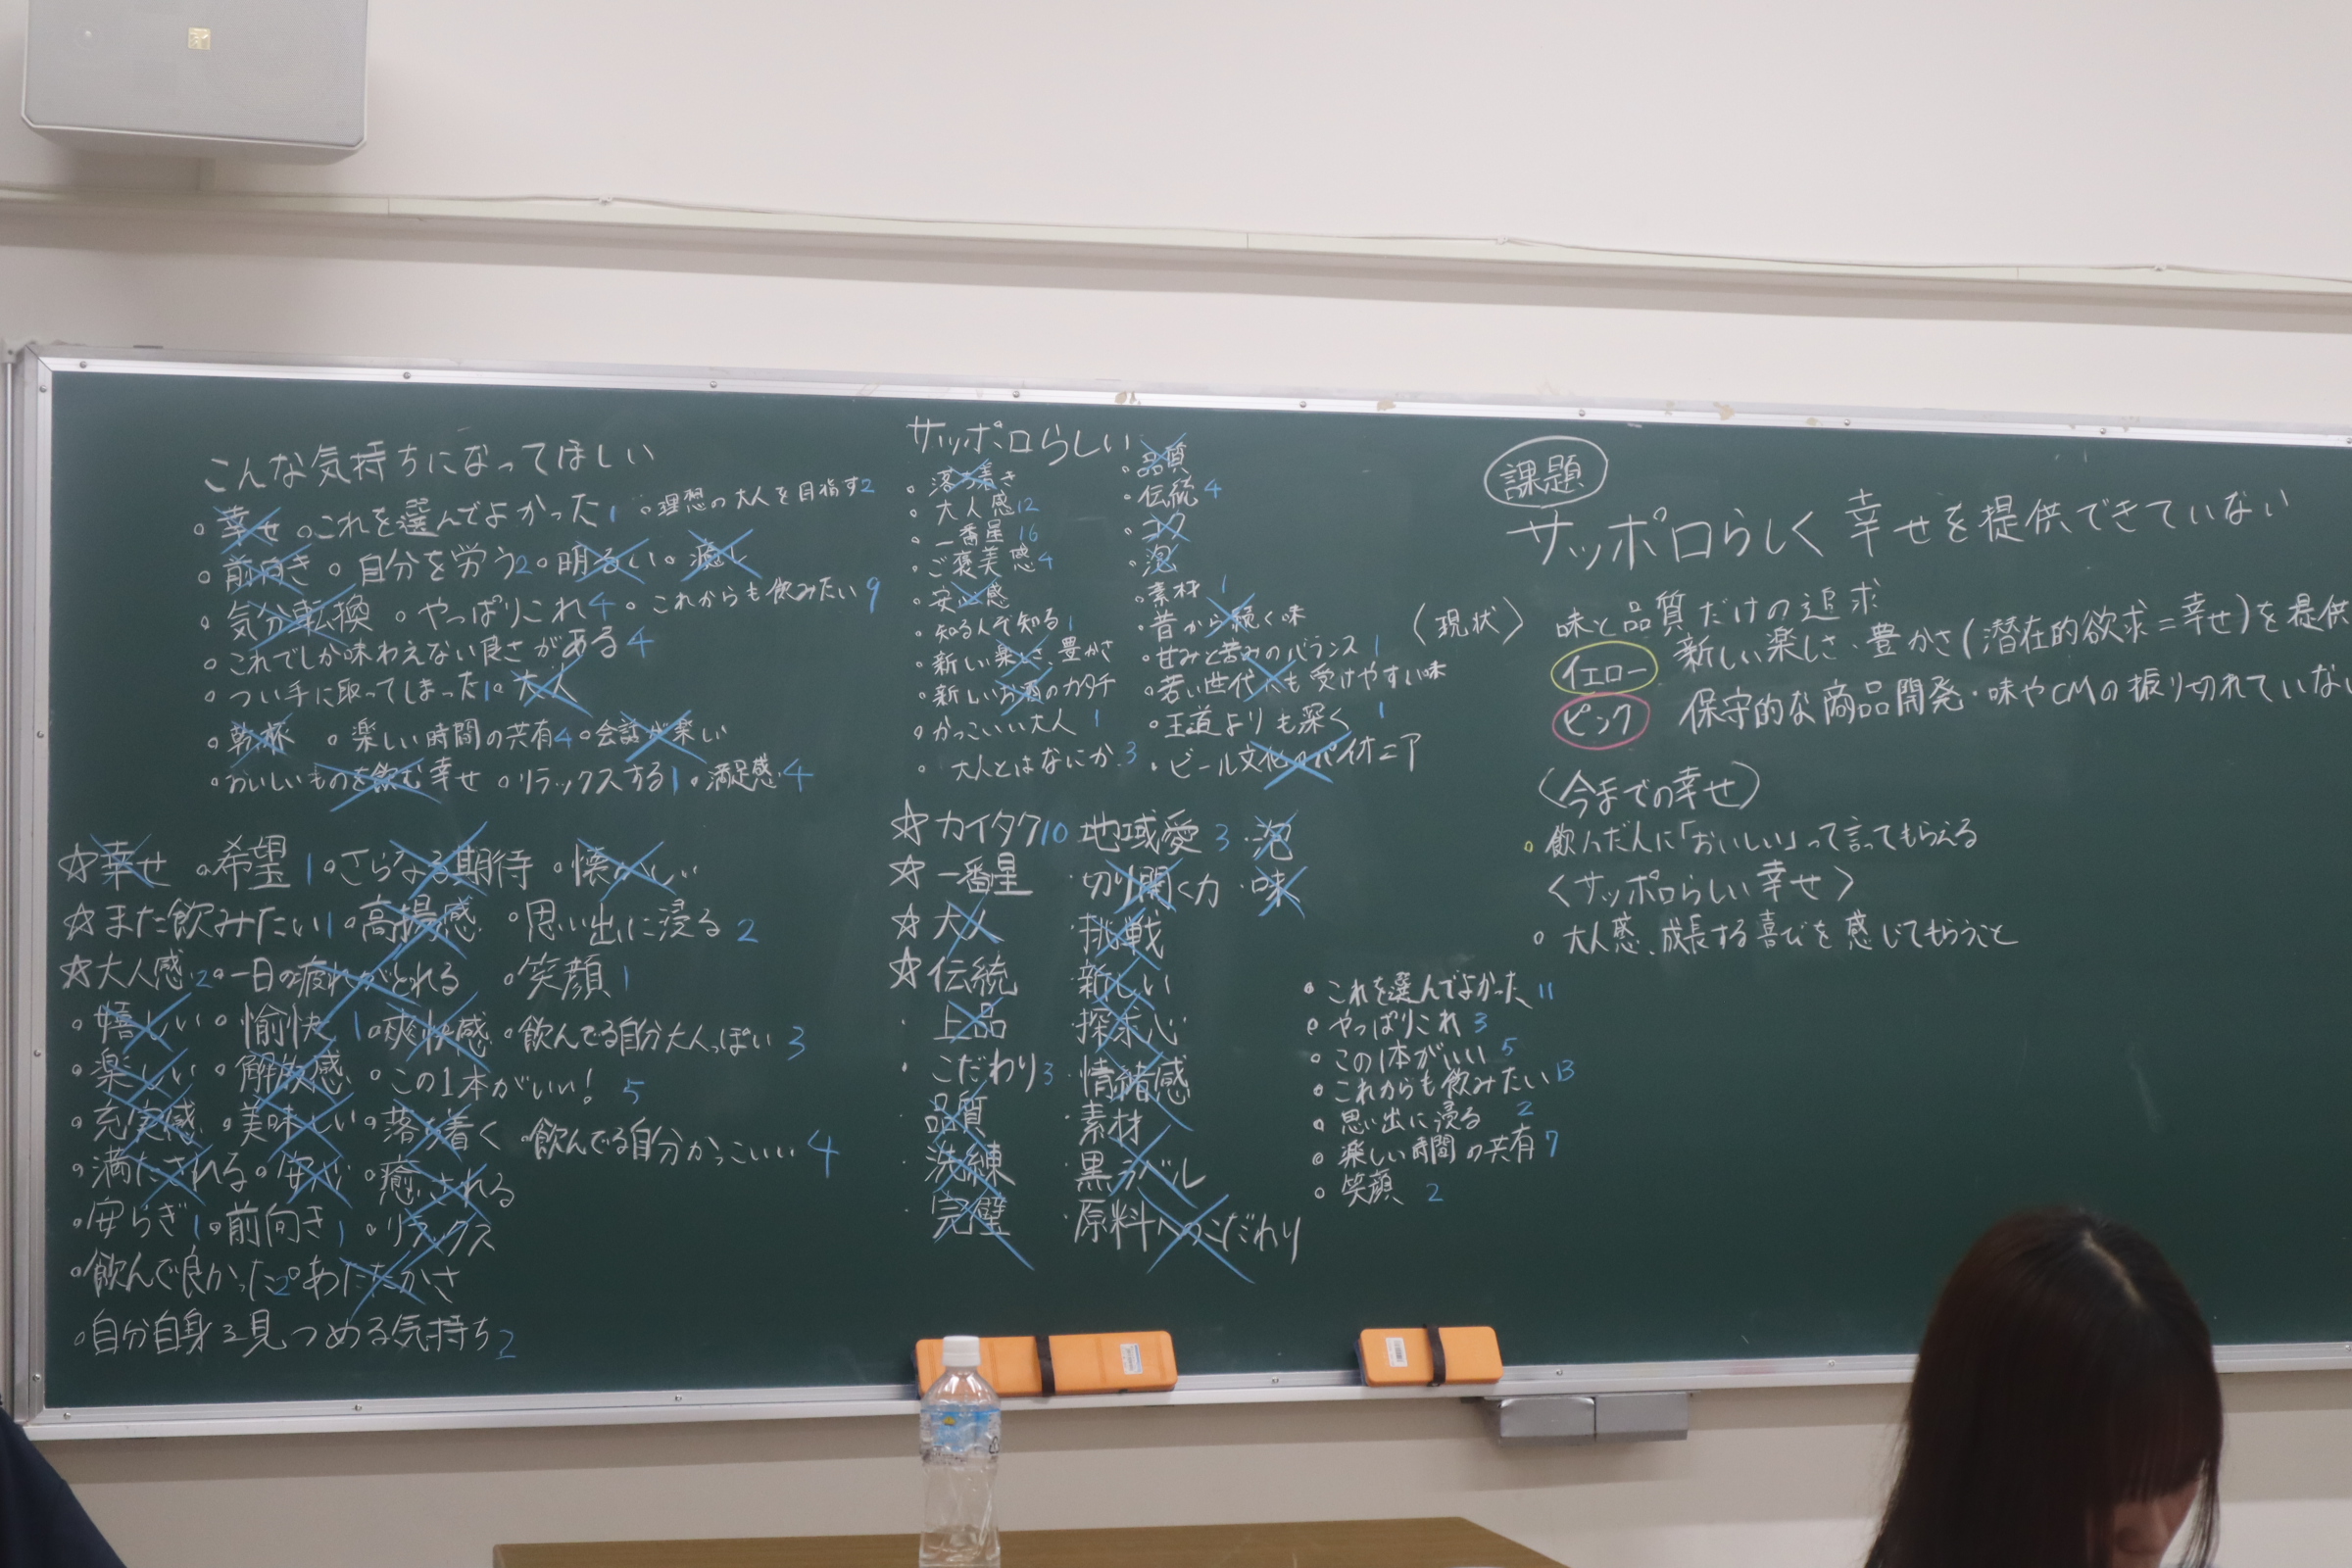 こんな気持ちになってほしい
◦幸せ ◦これを選んでよかった1 ◦理想の大人を目指す2
◦前向き ◦自分を労う2 ◦明るい ◦癒し
◦気分転換 ◦やっぱりこれ4 ◦これからも飲みたい9
◦これでしか味わえない良さがある4
◦つい手に取ってしまった1 ◦大人
◦乾杯 ◦楽しい時間の共有4 ◦会話が楽しい
◦おいしいものを飲む幸せ ◦リラックスする1 ◦満足感4
☆幸せ ◦希望1 ◦さらなる期待 ◦懐かしい
☆また飲みたい1 ◦高揚感 ◦思い出に浸る2
☆大人感2 ◦一日の疲れがとれる ◦笑顔1
・嬉しい ◦愉快1 ◦爽快感 ◦飲んでる自分大人っぽい3
◦楽しい ◦解放感 ◦この1本がいい!5
◦充実感 ◦美味しい ◦落ち着く ◦飲んでる自分かっこいい4
◦満たされる ◦安心 ◦癒される
◦安らぎ1 ◦前向き1 ◦リラックス
◦飲んで良かった2 ◦あたたかさ
◦自分自身を見つめる気持ち2
サッポロらしい
◦落ち着き
◦大人感12
◦一番星16
◦ご褒美感4
◦安心感
◦知る人ぞ知る1
◦新しい楽しさ、豊かさ
◦新しいお酒のカタチ
◦かっこいい大人1
◦大人とはなにか3
◦品質
◦伝統4
◦コク
◦泡
◦素材1
◦昔から続く味
◦甘みと苦みのバランス1
◦若い世代にも受けやすい味
◦王道よりも深く1
・ビール文化のパイオニア
☆カイタク10 地域愛3 ・泡
☆一番星 ・切り開く力 ・味
☆大人 ・挑戦
☆伝統 ・新しい
・上品 ・探求心
・こだわり3 ・情緒感
・品質 ・素材
・洗練 ・黒ラベル
・完璧 ・原料へのこだわり
◦これを選んでよかった11
◦やっぱりこれ3
◦この1本がいい5
◦これからも飲みたい13
◦思い出に浸る2
◦楽しい時間の共有7
◦笑顔2
課題
サッポロらしく幸せを提供できていない
〈現状〉 味と品質だけの追求
イエロー 新しい楽しさ・豊かさ(潜在的欲求=幸せ)を提供
ピンク 保守的な商品開発・味やCMの振り切れていない
〈今までの幸せ〉
◦飲んだ人に「おいしい」って言ってもらえる
〈サッポロらしい幸せ〉
◦大人感、成長する喜びを感じてもらうこと